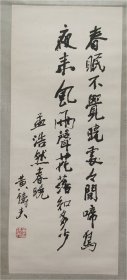 春眠不覺曉處々聞啼鳥
夜来風雨聲花落知多少
孟浩然春曉
黄偉夫